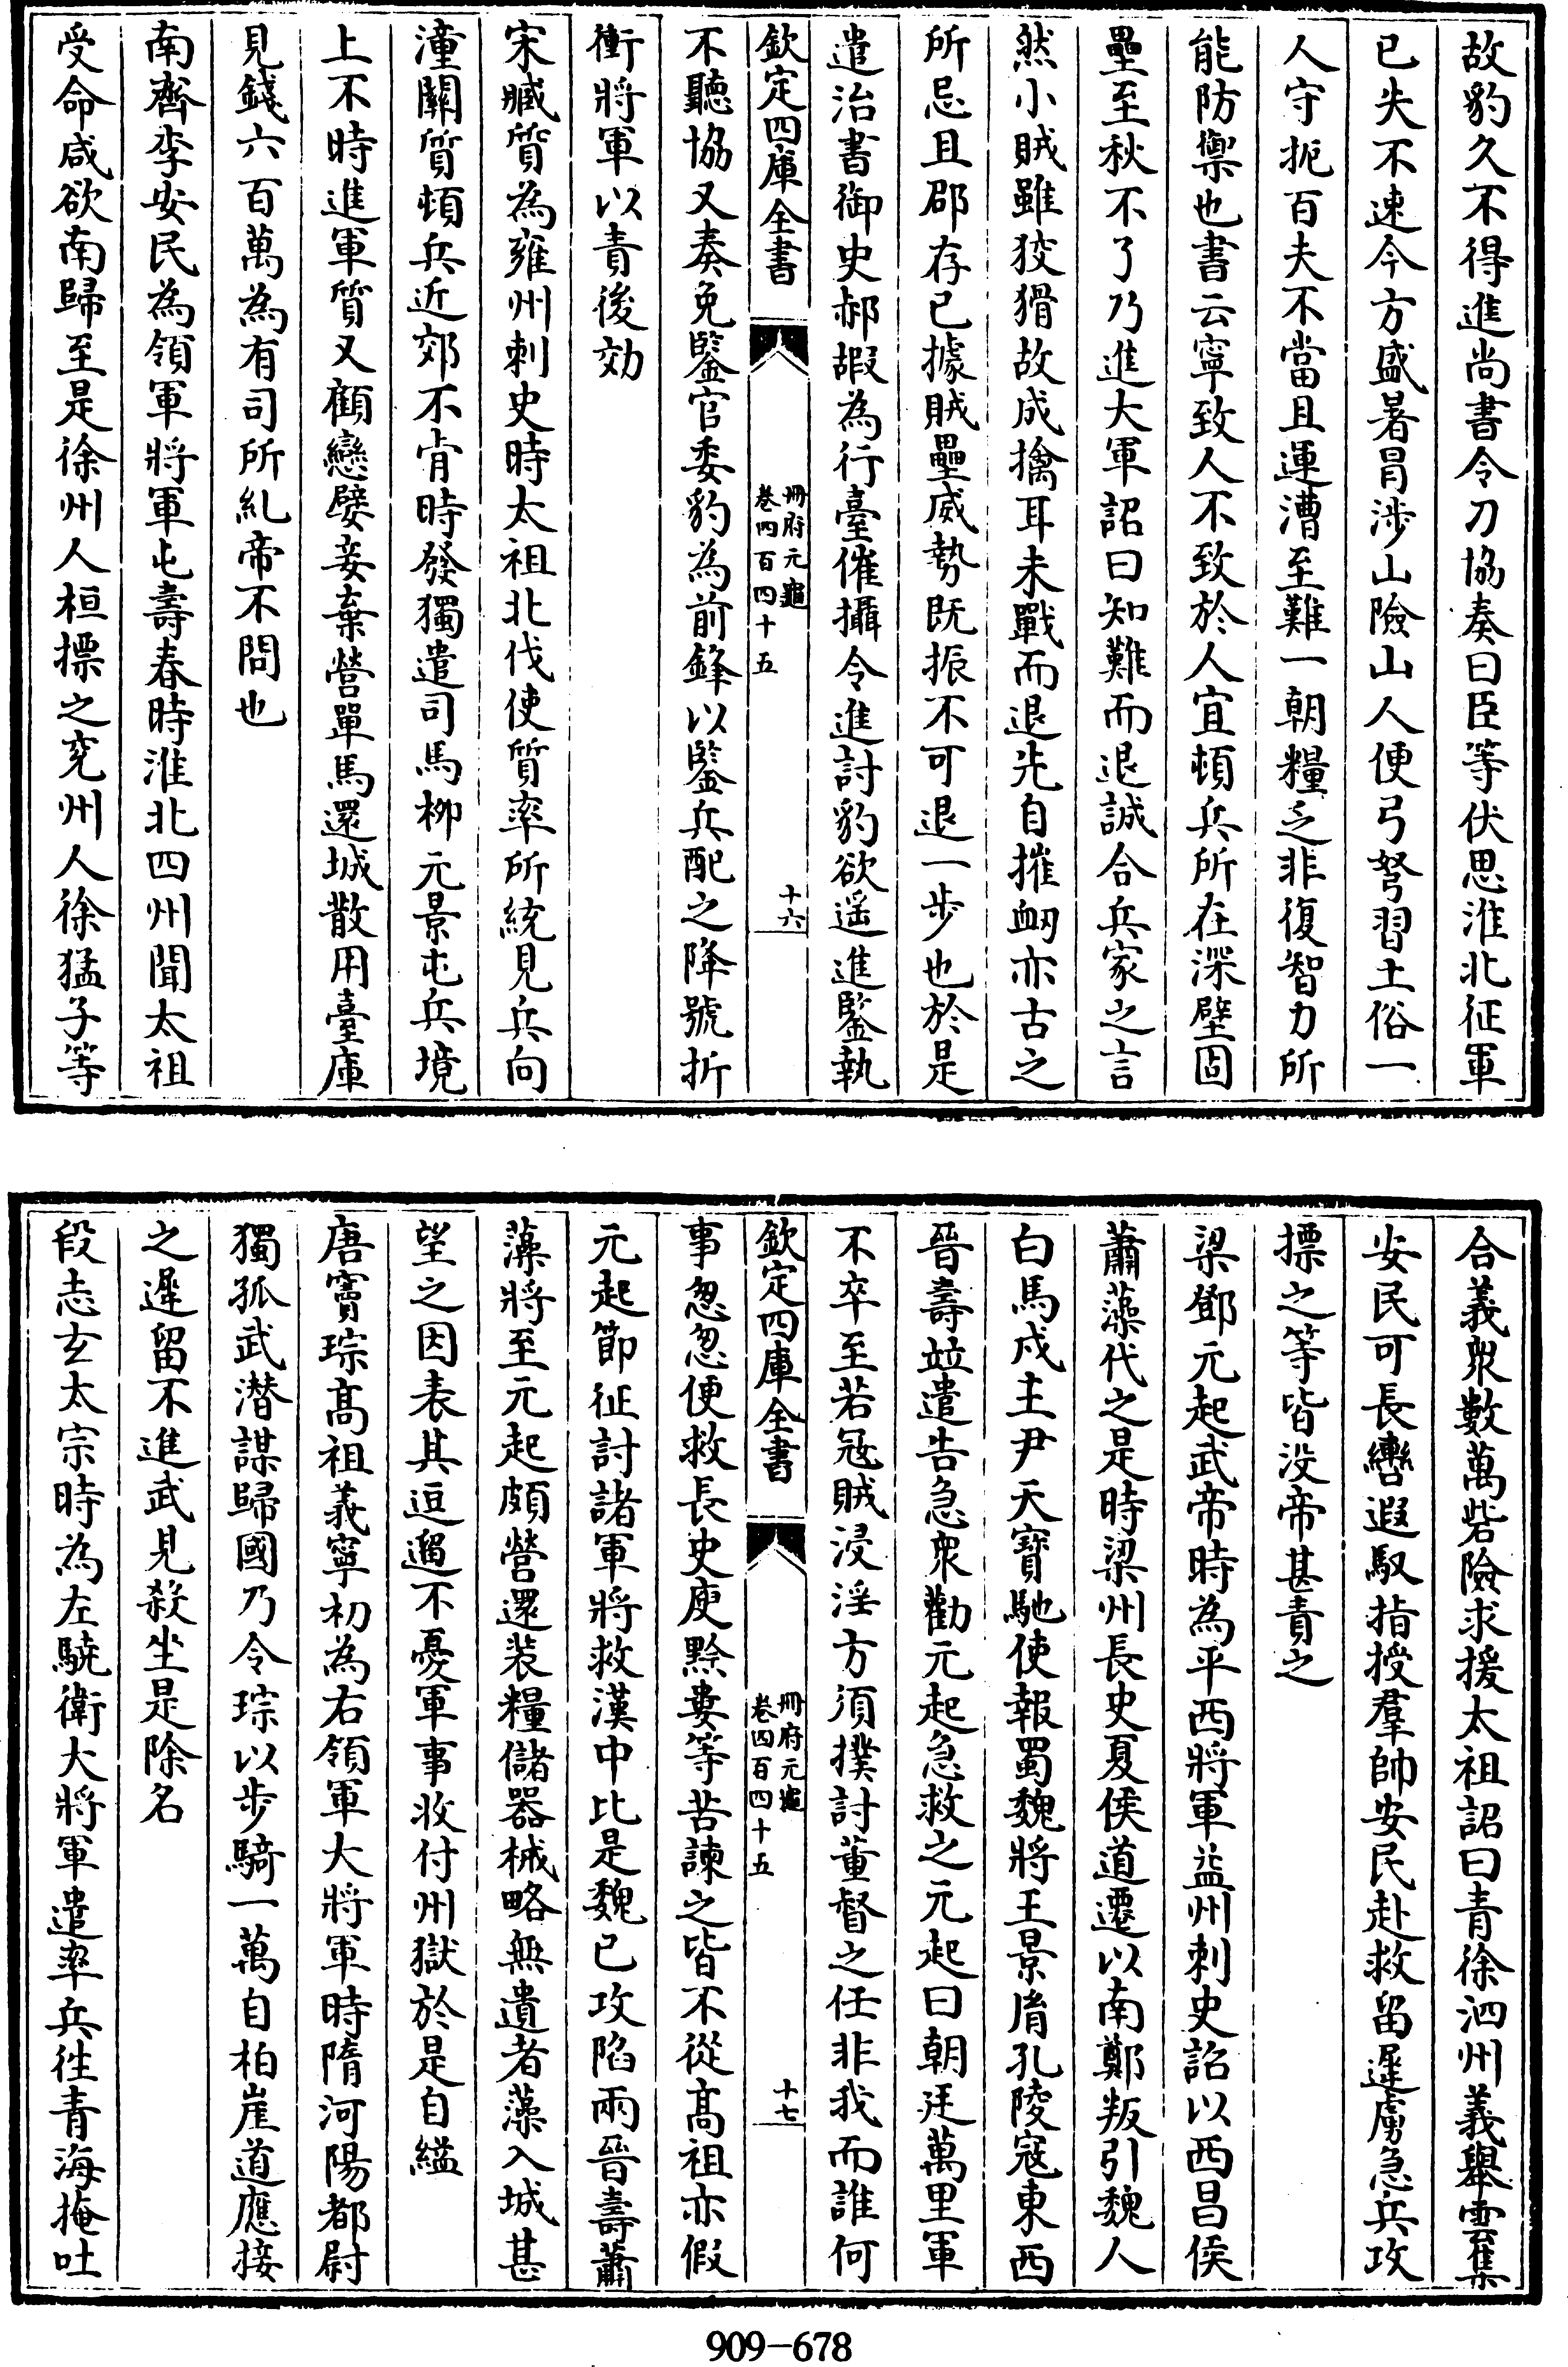 故豹久不得進尚書令刀協奏曰臣等伏思淮北征軍
已失不速今方盛暑冐涉山險山人便弓弩習土俗一
人守扼百夫不當且運漕至難一朝糧乏非復智力所
能防禦也書云寧致人不致於人宜頓兵所在深壁固
壘至秋不了乃進大軍詔曰知難而退誠合兵家之言
然小賊雖狡猾故成擒耳未戰而退先自摧衂亦古之
所忌且邵存已據賊壘威勢既振不可退一步也於是
遣治書御史郝嘏為行臺催攝令進討豹欲遥進鑒執
欽定四庫全書
冊府元龜
卷四百四十五
十六
不聽協又奏免鑒官委豹為前鋒以鑒兵配之降號折
衝將軍以責後効
宋臧質為雍州刺史時太祖北伐使質率所統見兵向
潼關質頓兵近郊不肯時發獨遣司馬柳元景屯兵境
上不時進軍質又顧戀嬖妾棄營單馬還城散用臺庫
見錢六百萬為有司所糺帝不問也
南齊李安民為領軍將軍屯壽春時淮北四州聞太祖
受命咸欲南歸至是徐州人桓摽之兖州人徐猛子等
合義衆數萬砦險求援太祖詔曰青徐泗州義舉雲集
安民可長轡遐馭指授羣帥安民赴救留遲虜急兵攻
摽之等皆没帝甚責之
梁鄧元起武帝時為平西將軍益州刺史詔以西昌侯
蕭藻代之是時梁州長史夏侯道遷以南鄭叛引魏人
白馬戍主尹天寶馳使報蜀魏將王景胤孔陵寇東西
晉壽竝遣告急衆勸元起急救之元起曰朝廷萬里軍
不卒至若冦賊浸淫方須撲討董督之任非我而誰何
欽定四庫全書
冊府元龜
卷四百四十五
十七
事怱怱便救長史庾黔婁等苦諫之皆不從髙祖亦假
元起節征討諸軍將救漢中比是魏已攻陷兩晉壽蕭
藻將至元起頗營還裝糧儲器械略無遺者藻入城甚
望之因表其逗遛不憂軍事收付州獄於是自縊
唐竇琮髙祖義寧初為右領軍大將軍時隋河陽都尉
獨孤武潜謀歸國乃令琮以步騎一萬自柏崖道應接
之遲留不進武見殺坐是除名
段志玄太宗時為左驍衛大將軍遣率兵徃青海掩吐
909-678